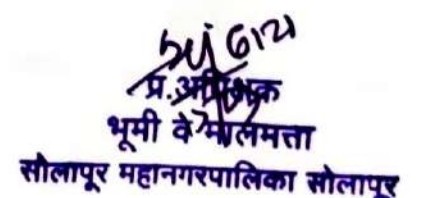 प्र.अधिक्षक
भूमी व मालमत्ता
सोलापूर महानगरपालिका सोलापूर